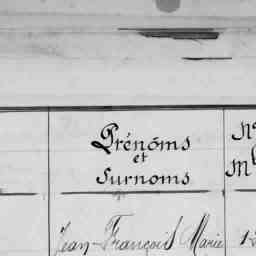 Prénoms
et
Surnoms
Jean-François Marie